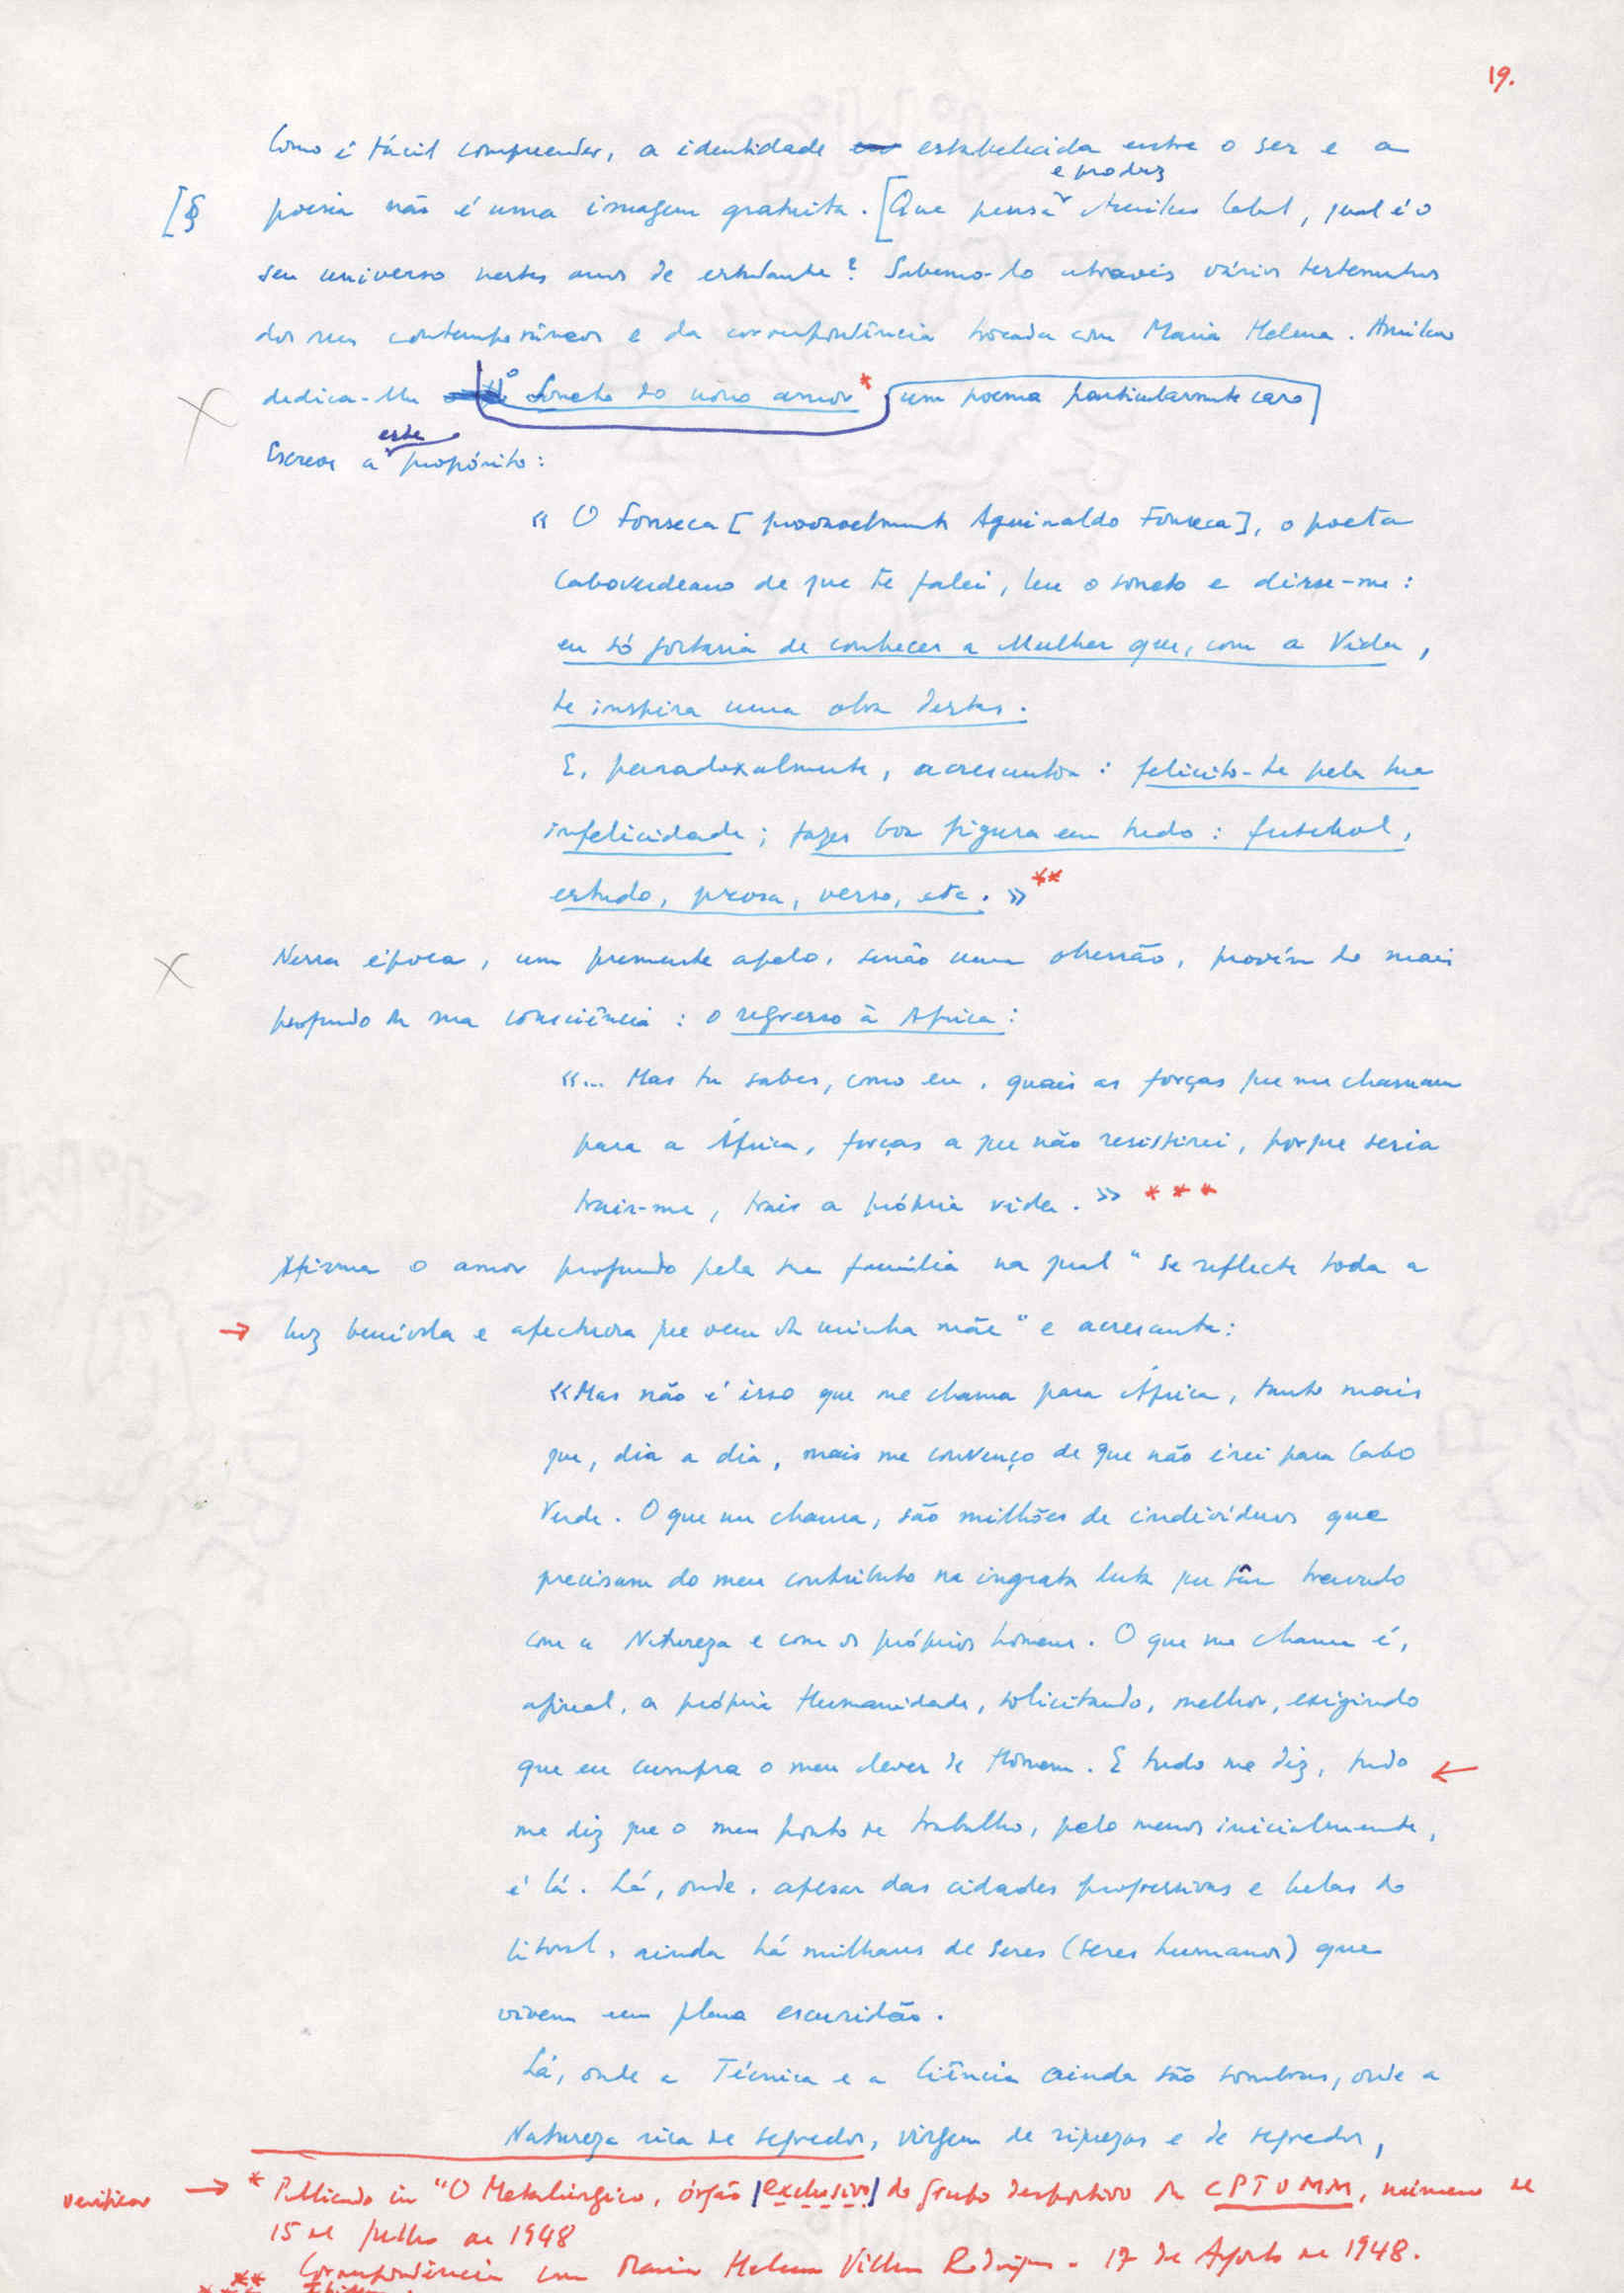 19.
Como é fácil compreender, a identidade estabelecida entre o ser e a
e produz
[§ poesia não é uma imagem gratuita. [Que pensa Amílcar Cabral, qual é o
seu universo nestes anos de estudante? Sabemo-lo através vários testemunhos
dos seus contemporâneos e da correspondência trocada com Maria Helena. Amílcar
dedica-lhe o Soneto do novo amor* um poema particularmente caro
este
Escreve a propósito:
« O Fonseca [provavelmente Aguinaldo Fonseca], o poeta
caboverdeano de que te falei, leu o soneto e disse-me:
eu só gostaria de conhecer a Mulher que, com a Vida,
te inspira uma obra destas.
E, paradoxalmente, acrescentou: felicito-te pela tua
infelicidade; fazes boa figura em tudo: futebol,
estudo, prosa, verso, etc. » **
Nessa época, um premente apelo, senão uma obsessão, provém do mais
profundo da sua consciência: o regresso à Africa:
«... Mas tu sabes, como eu, quais as forças que me chamam
para a África, forças a que não resistirei, porque seria
trair-me, trair a própria vida. » ***
Afirma o amor profundo pela sua família na qual "se reflecte toda a
→ luz benévola e afectuosa que vem da minha mãe" e acrescenta:
«Mas não é isso que me chama para África, tanto mais
que, dia a dia, mais me convenço de que não irei para Cabo
Verde. O que me chama, são milhões de indivíduos que
precisam do meu contributo na ingrata luta que têm travado
com a Natureza e com os próprios homens. O que me chama é,
afinal, a própria Humanidade, solicitando, melhor, exigindo
que eu cumpra o meu dever de Homem. E tudo me diz, tudo ←
me diz que o meu posto de trabalho, pelo menos inicialmente,
é lá. Lá, onde, apesar das cidades progressivas e belas do
litoral, ainda há milhares de seres (seres humanos) que
vivem em plena escuridão.
Lá, onde a Técnica e a Ciência ainda são sombras, onde a
Natureza rica de segredos, virgem de riquezas e de segredos,
verificar → * Publicado in "O Metalúrgico, órgão [exclusivo] do Grupo Desportivo da CPTUMM, número de
15 de Julho de 1948
** Correspondência com Maria Helena Vilhena Rodrigues - 17 de Agosto de 1948.
*** Ibidem.